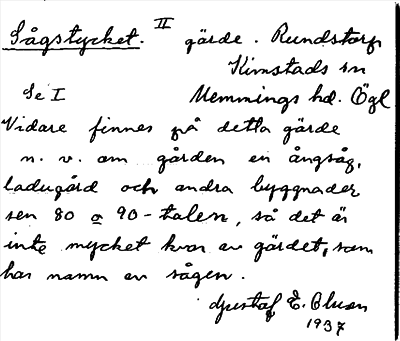 Sågstycket. II gärde. Rundstorp
Kimstads sn
Se I Memmings hd. Ögl.
Vidare finnes på detta gärde
n. v. om gården en ångsåg,
ladugård och andra byggnader
sen 80 o 90-talen, så det är
inte mycket kvar av gärdet, som
har namn av sågen.
Gustaf E. Olsson
1937